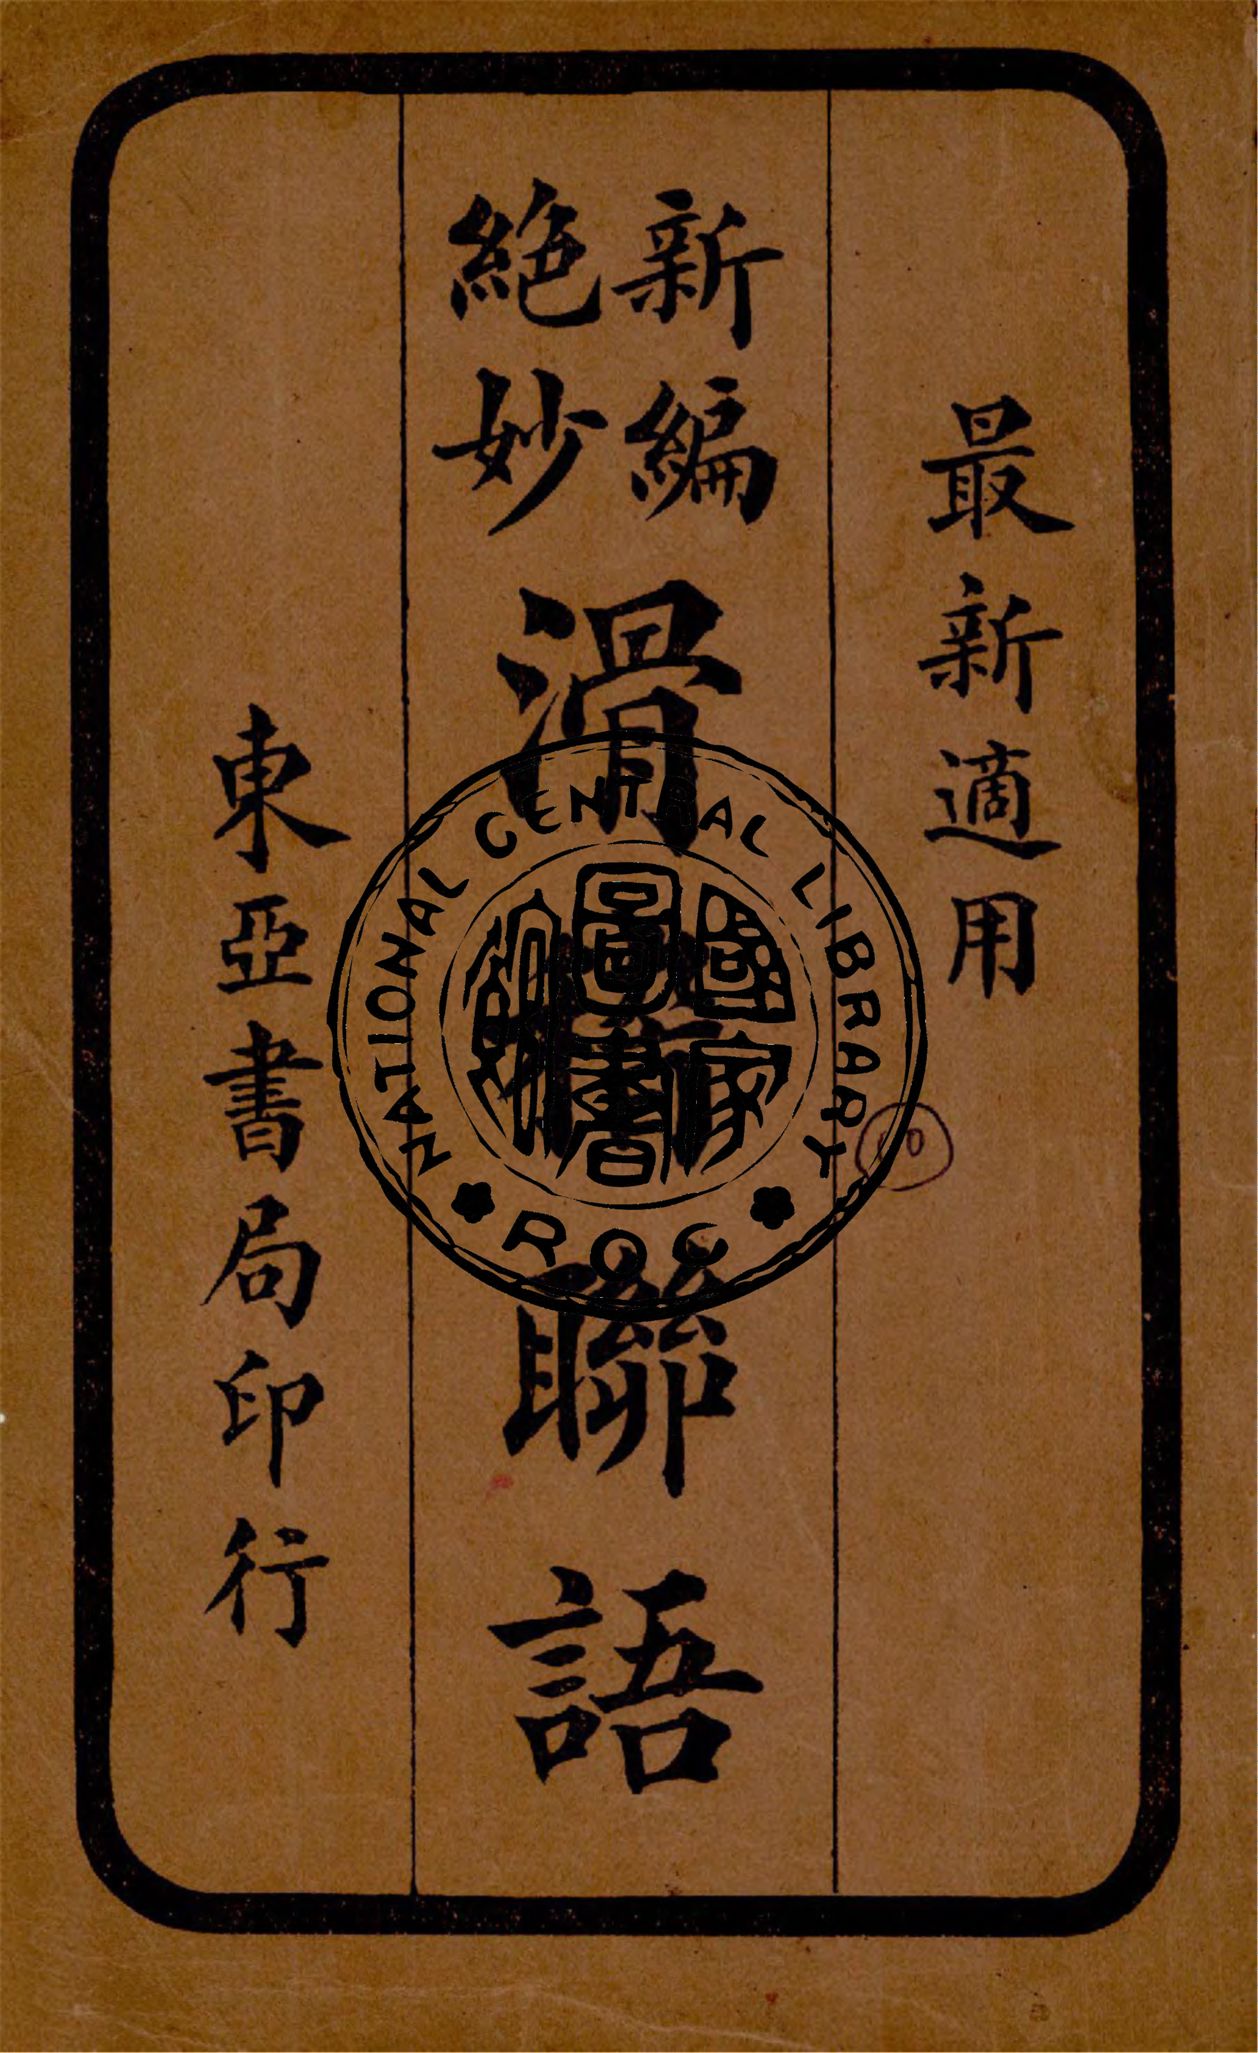 最新適用
新編
絶妙
滑
聯語
東亞書局印行
NATIONAL CENTRAL LIBRARY
ROC
國家
圖書
館